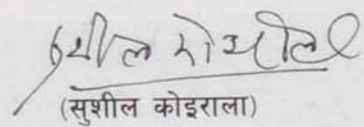 सुशील कोइराला
(सुशील कोइराला)